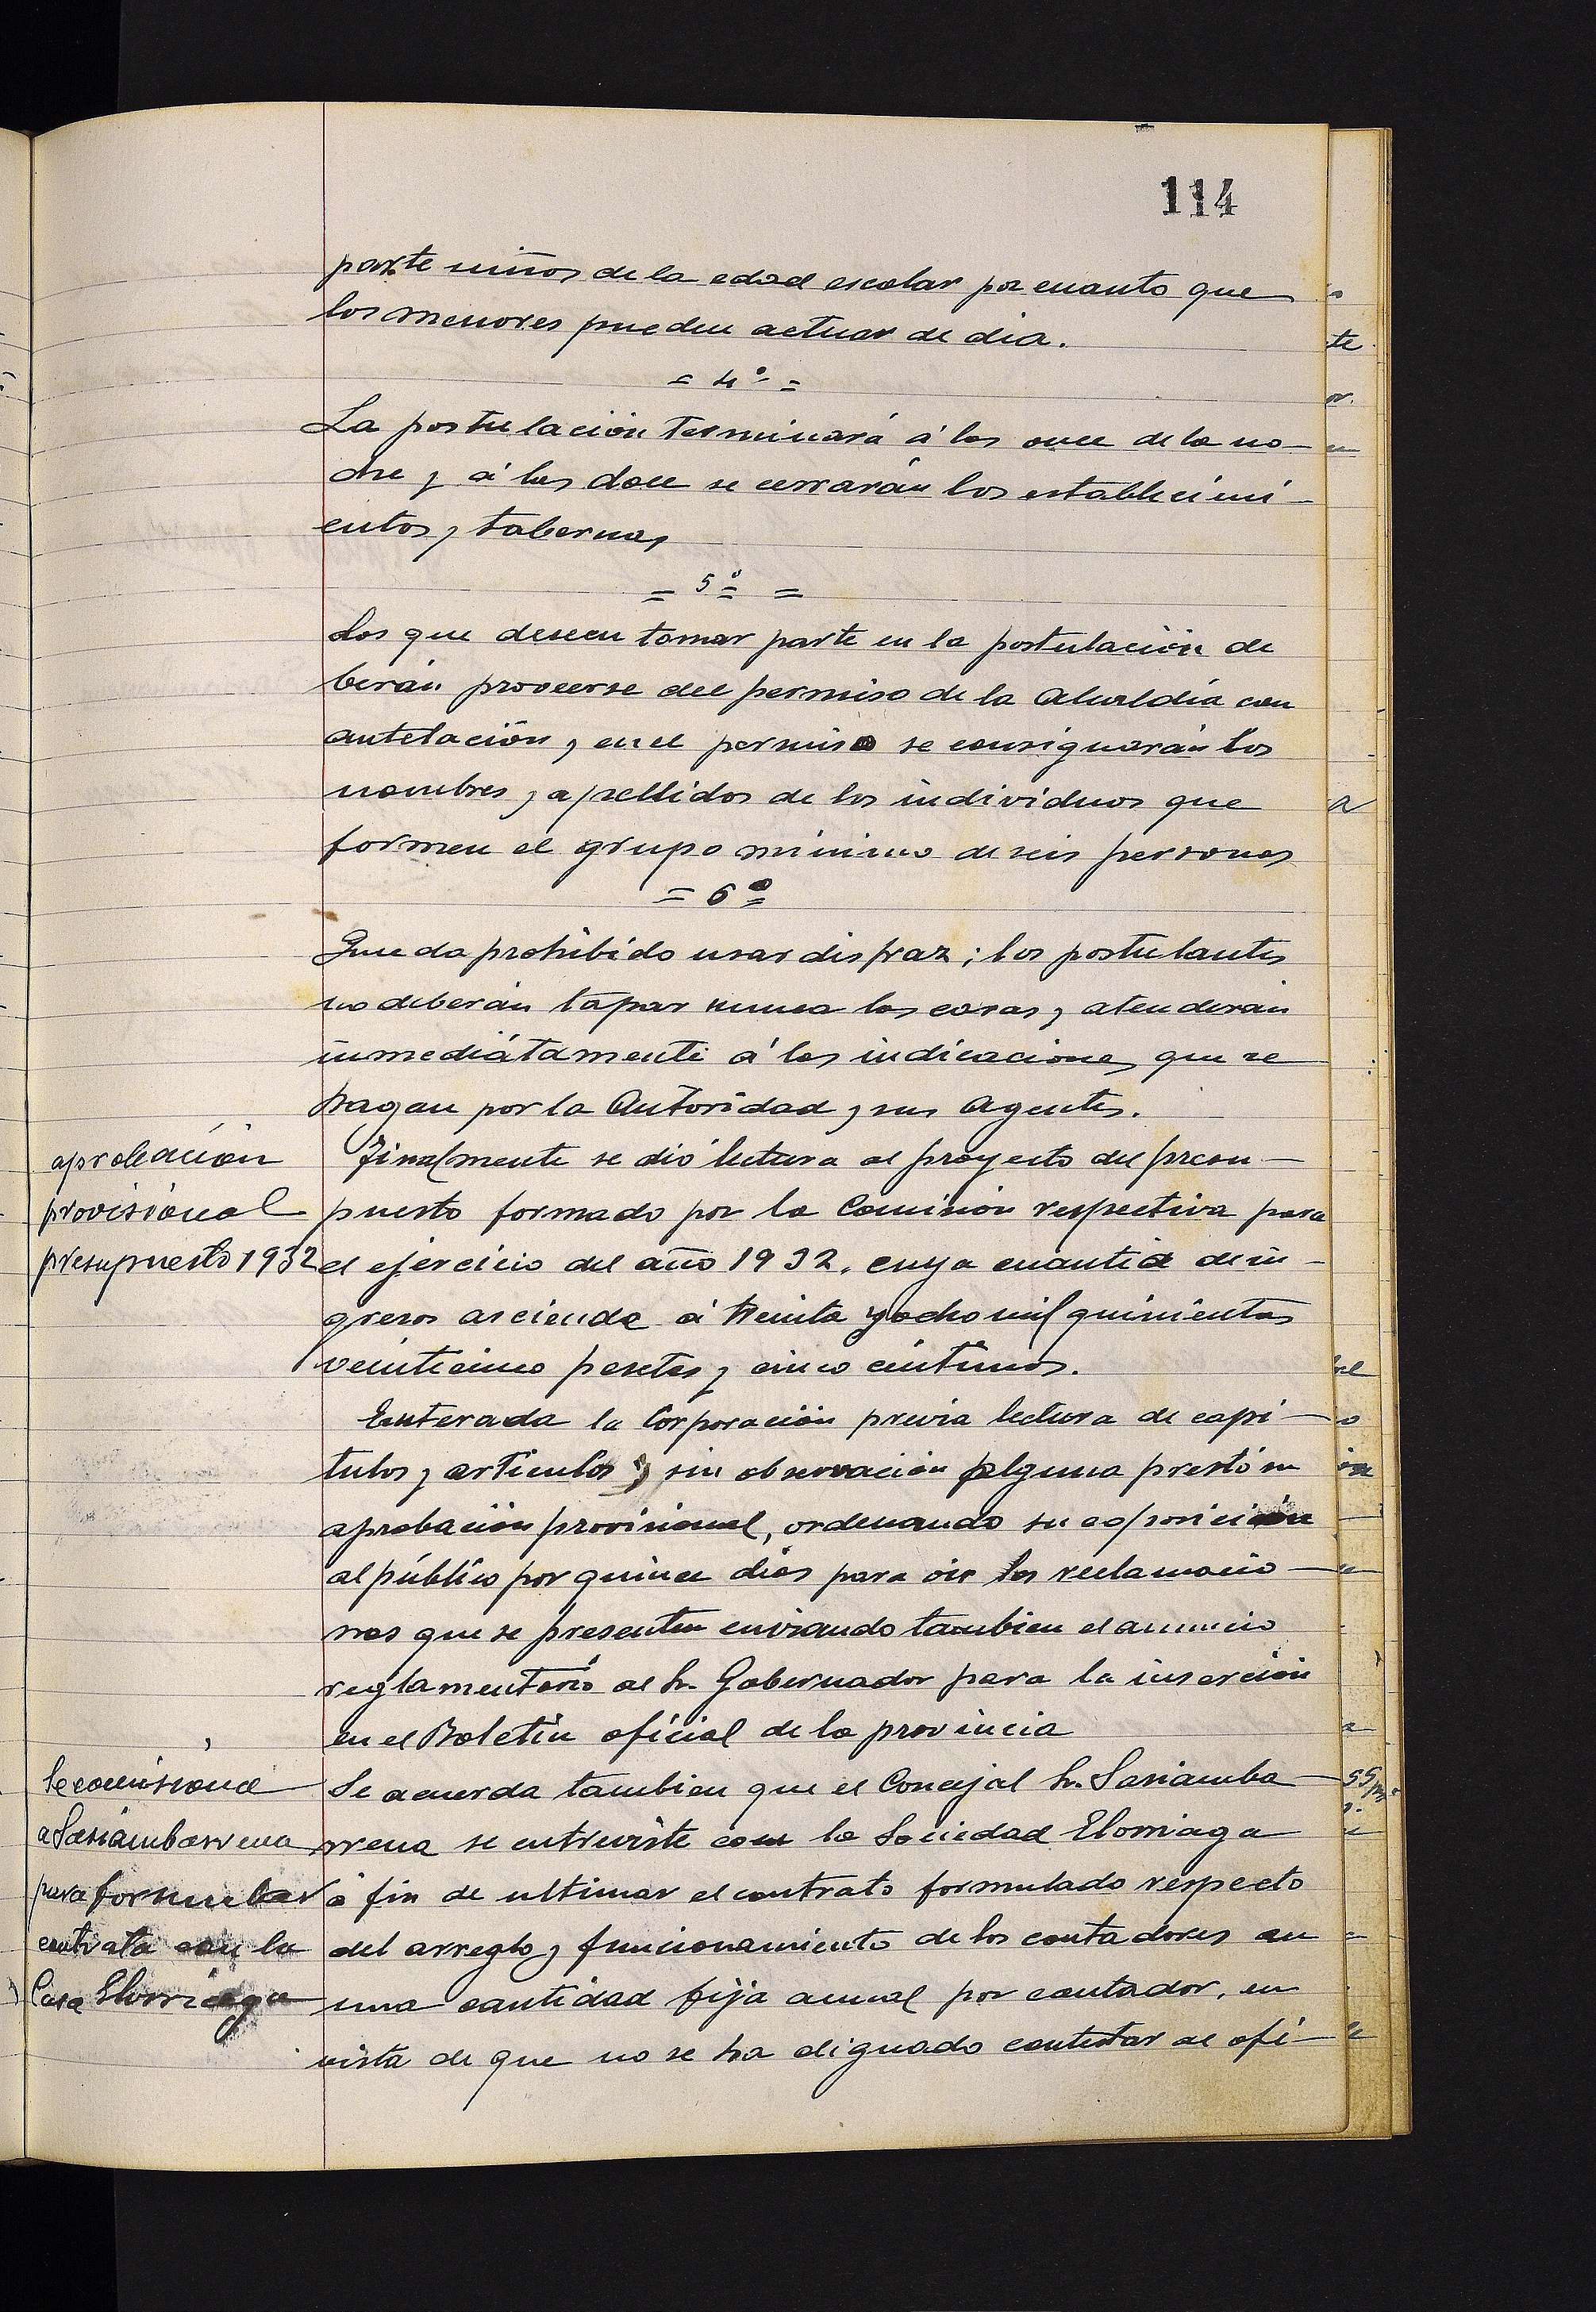 114
parte niños de la edad escolar por cuanto que
los menores pueden actuar de dia.
= 4º =
La postulación terminará á las once de la no-
che y á las doce se cerrarán los establecimi-
entos y tabernas
= 5º =
Los que deseen tomar parte en la postulación de
berán proveerse del permiso de la Alcaldía con
antelación y en el permiso se consignarán los
nombres y apellidos de los individuos que
formen el grupo minimo de seis personas
= 6º
Queda prohibido usar disfraz; los postulantes
no deberán tapar nunca las caras y atenderán
inmediátamente á las indicaciones que se
hagan por la Autoridad y sus Agentes.
aprobación
provisional
presupuesto 1932
Finalmente se dió lectura al proyecto del presu-
puesto formado por la Comisión respectiva para
el ejercicio del año 1932, cuya cuantía de in-
gresos asciende á treinta y ocho mil quinientas
veinticinco pesetas y cinco céntimos.
Enterada la Corporación previa lectura de capí-
tulos y articulos y sin observación alguna prestó su
aprobación provisional, ordenando su exposición
al público por quince dias para oir las reclamacio-
nes que se presenten enviando tambien el anuncio
reglamentario al Sr. Gobernador para la inserción
en el Boletín oficial de la provincia
Se comisiona
a Sasiambarrena
para formular
contrata con la
Casa Elorriaga
Se acuerda tambien que el Concejal Sr. Sasiamba-
rrena se entreviste con la Sociedad Elorriaga
á fin de ultimar el contrato formulado respecto
del arreglo y funcionamiento de los contadores en
una cantidad fija anual por contador, en
vista de que no se ha dignado contestar al ofi-